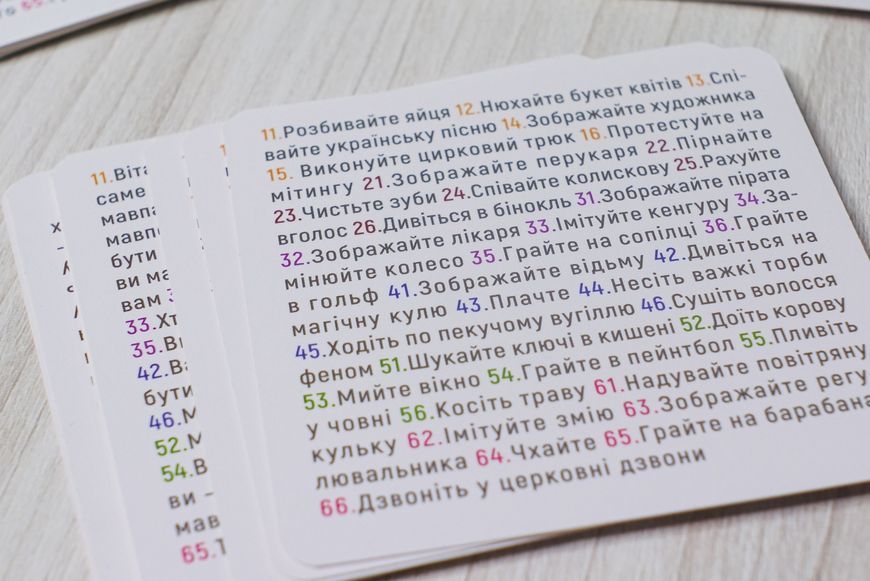 55.
11.Віта
саме
мавпа
мавпо
бути
ви ма
вам
33.Хт
35.Ви
42.Ва
бути
46.М
52.М
54.В
ви –
мав
65.Т
11.Розбивайте яйця 12.Нюхайте букет квітів 13.Спі-
вайте українську пісню 14.Зображайте художника
15. Виконуйте цирковий трюк 16.Протестуйте на
мітингу 21.Зображайте перукаря 22.Пірнайте
23.Чистьте зуби 24.Співайте колискову 25.Рахуйте
вголос 26.Дивіться в бінокль 31.Зображайте пірата
32.Зображайте лікаря 33.Імітуйте кенгуру 34.За-
мінюйте колесо 35.Грайте на сопілці 36.Грайте
в гольф 41.Зображайте відьму 42.Дивіться на
магічну кулю 43.Плачте 44.Несіть важкі торби
45.Ходіть по пекучому вугіллю 46.Сушіть волосся
феном 51.Шукайте ключі в кишені 52.Доїть корову
53.Мийте вікно 54.Грайте в пейнтбол 55.Пливіть
у човні 56.Косіть траву 61.Надувайте повітряну
кульку 62.Імітуйте змію 63.Зображайте регу
лювальника 64.Чхайте 65.Грайте на барабана
66.Дзвоніть у церковні дзвони